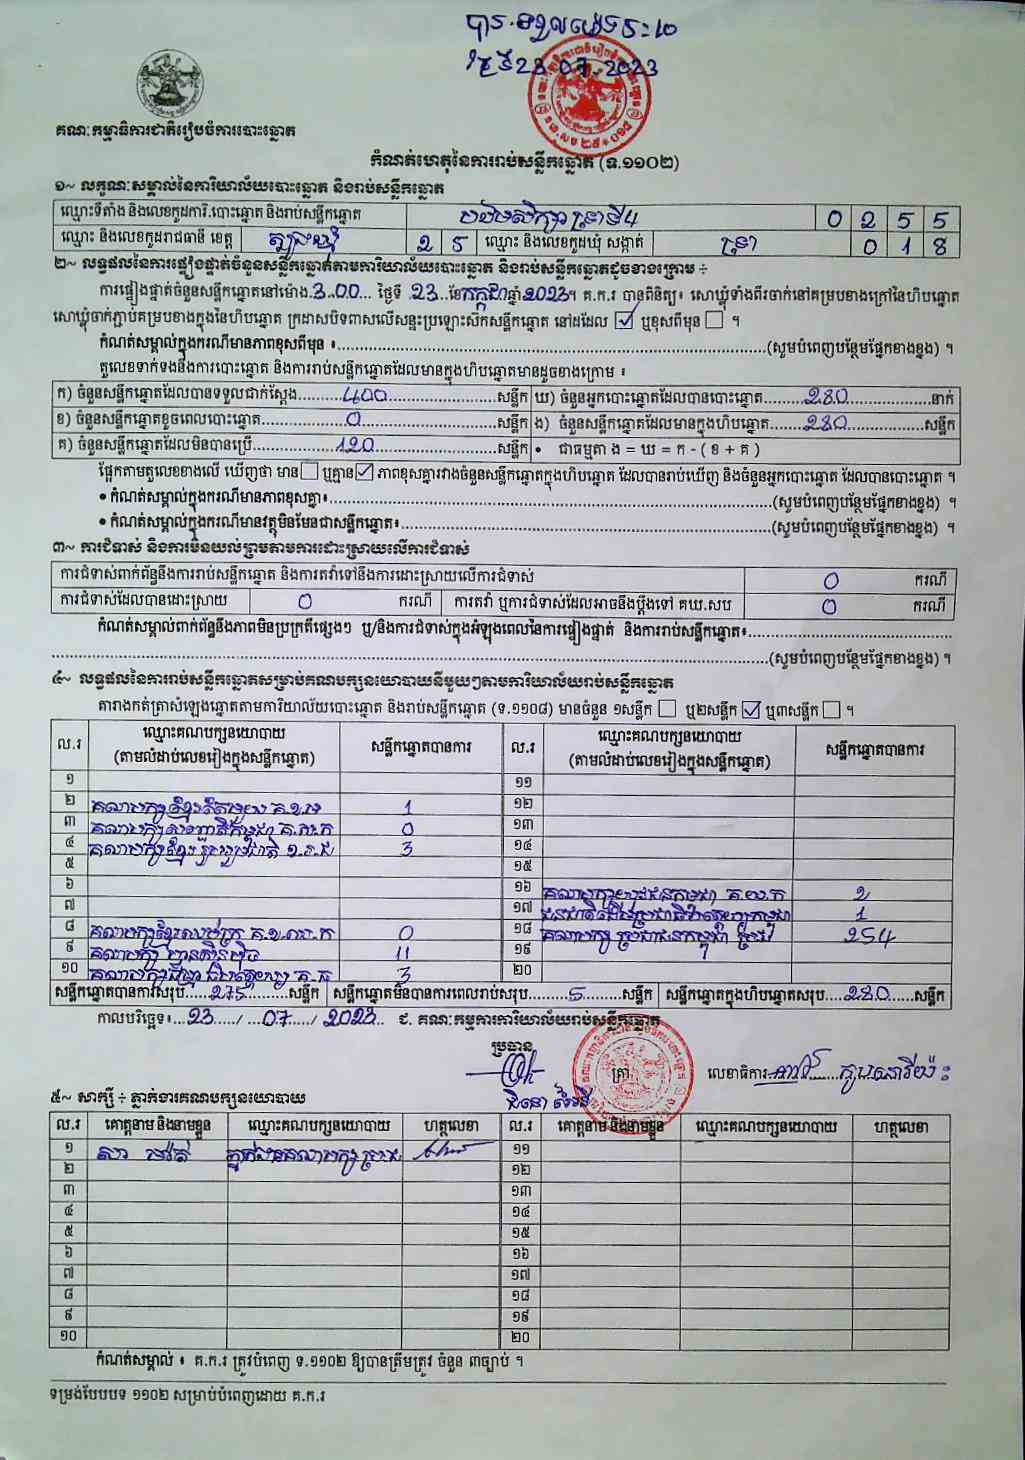 ថ្ងៃទី 23.07.2023
គណៈកម្មាធិការជាតិរៀបចំការបោះឆ្នោត
កំណត់ហេតុនៃការរាប់សន្លឹកឆ្នោត (ទ.១១០២)
១~ លក្ខណៈសម្គាល់នៃការិយាល័យបោះឆ្នោត និងរាប់សន្លឹកឆ្នោត
ឈ្មោះទីតាំង និងលេខកូដការិ.បោះឆ្នោត និងរាប់សន្លឹកឆ្នោត 0 2 5 5
ឈ្មោះ និងលេខកូដរាជធានី ខេត្ត ត្បូងឃ្មុំ 2 5 ឈ្មោះ និងលេខកូដឃុំ សង្កាត់ ទ្រា 0 1 8
២~ លទ្ធផលនៃការផ្ទៀងផ្ទាត់ចំនួនសន្លឹកឆ្នោតតាមការិយាល័យបោះឆ្នោត និងរាប់សន្លឹកឆ្នោតដូចខាងក្រោម ÷
ការផ្ទៀងផ្ទាត់ចំនួនសន្លឹកឆ្នោតនៅម៉ោង.3..00... ថ្ងៃទី .23..ខែកក្កដាឆ្នាំ2023។ គ.ក.រ បានពិនិត្យ៖ សោឃ្លុំទាំងពីរចាក់នៅគម្របខាងក្រៅនៃហិបឆ្នោត
សោឃ្លុំចាក់ភ្ជាប់គម្របខាងក្នុងនៃហិបឆ្នោត ក្រដាសបិទពាសលើសន្ទះប្រឡោះសឹកសន្លឹកឆ្នោត នៅដដែល ☑ ឬខុសពីមុន ☐ ។
កំណត់សម្គាល់ក្នុងករណីមានភាពខុសពីមុន ៖...(សូមបំពេញបន្ថែមផ្នែកខាងខ្នង) ។
តួលេខទាក់ទងនឹងការបោះឆ្នោត និងការរាប់សន្លឹកឆ្នោតដែលមានក្នុងហិបឆ្នោតមានដូចខាងក្រោម ៖
ក) ចំនួនសន្លឹកឆ្នោតដែលបានទទួលជាក់ស្តែង...400...សន្លឹក ឃ) ចំនួនអ្នកបោះឆ្នោតដែលបានបោះឆ្នោត...280...នាក់
ខ) ចំនួនសន្លឹកឆ្នោតខូចពេលបោះឆ្នោត...0...សន្លឹក ង) ចំនួនសន្លឹកឆ្នោតដែលមានក្នុងហិបឆ្នោត...280...សន្លឹក
គ) ចំនួនសន្លឹកឆ្នោតដែលមិនបានប្រើ...120...សន្លឹក • ជាធម្មតា ង = ឃ = ក - ( ខ + គ )
ផ្អែកតាមតួលេខខាងលើ ឃើញថា មាន ☐ ឬគ្មាន ☑ ភាពខុសគ្នារវាងចំនួនសន្លឹកឆ្នោតក្នុងហិបឆ្នោត ដែលបានរាប់ឃើញ និងចំនួនអ្នកបោះឆ្នោត ដែលបានបោះឆ្នោត ។
• កំណត់សម្គាល់ក្នុងករណីមានភាពខុសគ្នា៖...(សូមបំពេញបន្ថែមផ្នែកខាងខ្នង) ។
• កំណត់សម្គាល់ក្នុងករណីមានវត្ថុមិនមែនជាសន្លឹកឆ្នោត៖...(សូមបំពេញបន្ថែមផ្នែកខាងខ្នង) ។
៣~ ការជំទាស់ និងការមិនយល់ព្រមតាមការដោះស្រាយលើការជំទាស់
ការជំទាស់ពាក់ព័ន្ធនឹងការរាប់សន្លឹកឆ្នោត និងការតវ៉ាទៅនឹងការដោះស្រាយលើការជំទាស់ 0 ករណី
ការជំទាស់ដែលបានដោះស្រាយ 0 ករណី ការតវ៉ា ឬការជំទាស់ដែលអាចនឹងប្តឹងទៅ គឃ.សប 0 ករណី
កំណត់សម្គាល់ពាក់ព័ន្ធនឹងភាពមិនប្រក្រតីផ្សេងៗ ឬ/និងការជំទាស់ក្នុងអំឡុងពេលនៃការផ្ទៀងផ្ទាត់ និងការរាប់សន្លឹកឆ្នោត៖...
...(សូមបំពេញបន្ថែមផ្នែកខាងខ្នង) ។
៤~ លទ្ធផលនៃការរាប់សន្លឹកឆ្នោតសម្រាប់គណបក្សនយោបាយនីមួយៗតាមការិយាល័យរាប់សន្លឹកឆ្នោត
តារាងកត់ត្រាសំឡេងឆ្នោតតាមការិយាល័យបោះឆ្នោត និងរាប់សន្លឹកឆ្នោត (ទ.១១០៨) មានចំនួន ១សន្លឹក ☐ ឬ២សន្លឹក ☑ ឬ៣សន្លឹក ☐ ។
ល.រ ឈ្មោះគណបក្សនយោបាយ (តាមលំដាប់លេខរៀងក្នុងសន្លឹកឆ្នោត) សន្លឹកឆ្នោតបានការ ល.រ ឈ្មោះគណបក្សនយោបាយ (តាមលំដាប់លេខរៀងក្នុងសន្លឹកឆ្នោត) សន្លឹកឆ្នោតបានការ
១ ១១
២ គណបក្សខ្មែរតែមួយ គ.ខ.ម 1 ១២
៣ គណបក្ស 0 ១៣
៤ គណបក្សខ្មែររួបរួមជាតិ ខ.រ.ជ 3 ១៤
៥ ១៥
៦ ១៦ គណបក្សយុវជនកម្ពុជា គ.យ.ក 2
៧ ១៧ 1
៨ គណបក្ស 0 ១៨ គណបក្ស ប្រជាជនកម្ពុជា 254
៩ គណបក្ស ហ៊្វុនស៊ិនប៉ិច 11 ១៩
១០ គណបក្ស 3 ២០
សន្លឹកឆ្នោតបានការសរុប...275...សន្លឹក សន្លឹកឆ្នោតមិនបានការពេលរាប់សរុប...5...សន្លឹក សន្លឹកឆ្នោតក្នុងហិបឆ្នោតសរុប...280...សន្លឹក
កាលបរិច្ឆេទ៖...23..../...07..../...2023.. ជ. គណៈកម្មការការិយាល័យរាប់សន្លឹកឆ្នោត
ប្រធាន
ត្រា លេខាធិការ
៥~ សាក្សី ÷ ភ្នាក់ងារគណបក្សនយោបាយ
ល.រ គោត្តនាម និងនាមខ្លួន ឈ្មោះគណបក្សនយោបាយ ហត្ថលេខា ល.រ គោត្តនាម និងនាមខ្លួន ឈ្មោះគណបក្សនយោបាយ ហត្ថលេខា
១ ១១
២ ១២
៣ ១៣
៤ ១៤
៥ ១៥
៦ ១៦
៧ ១៧
៨ ១៨
៩ ១៩
១០ ២០
កំណត់សម្គាល់ ៖ គ.ក.រ ត្រូវបំពេញ ទ.១១០២ ឱ្យបានត្រឹមត្រូវ ចំនួន ៣ច្បាប់ ។
ទម្រង់បែបបទ ១១០២ សម្រាប់បំពេញដោយ គ.ក.រ